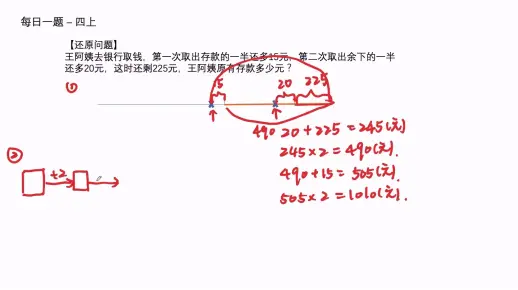 每日一题 – 四上
【还原问题】
王阿姨去银行取钱，第一次取出存款的一半还多15元，第二次取出余下的一半
还多20元，这时还剩225元，王阿姨原有存款多少元？
①
15 20 225
490
20+225=245(元)
245×2=490(元).
490+15=505(元).
505×2=1010(元).
②
÷2